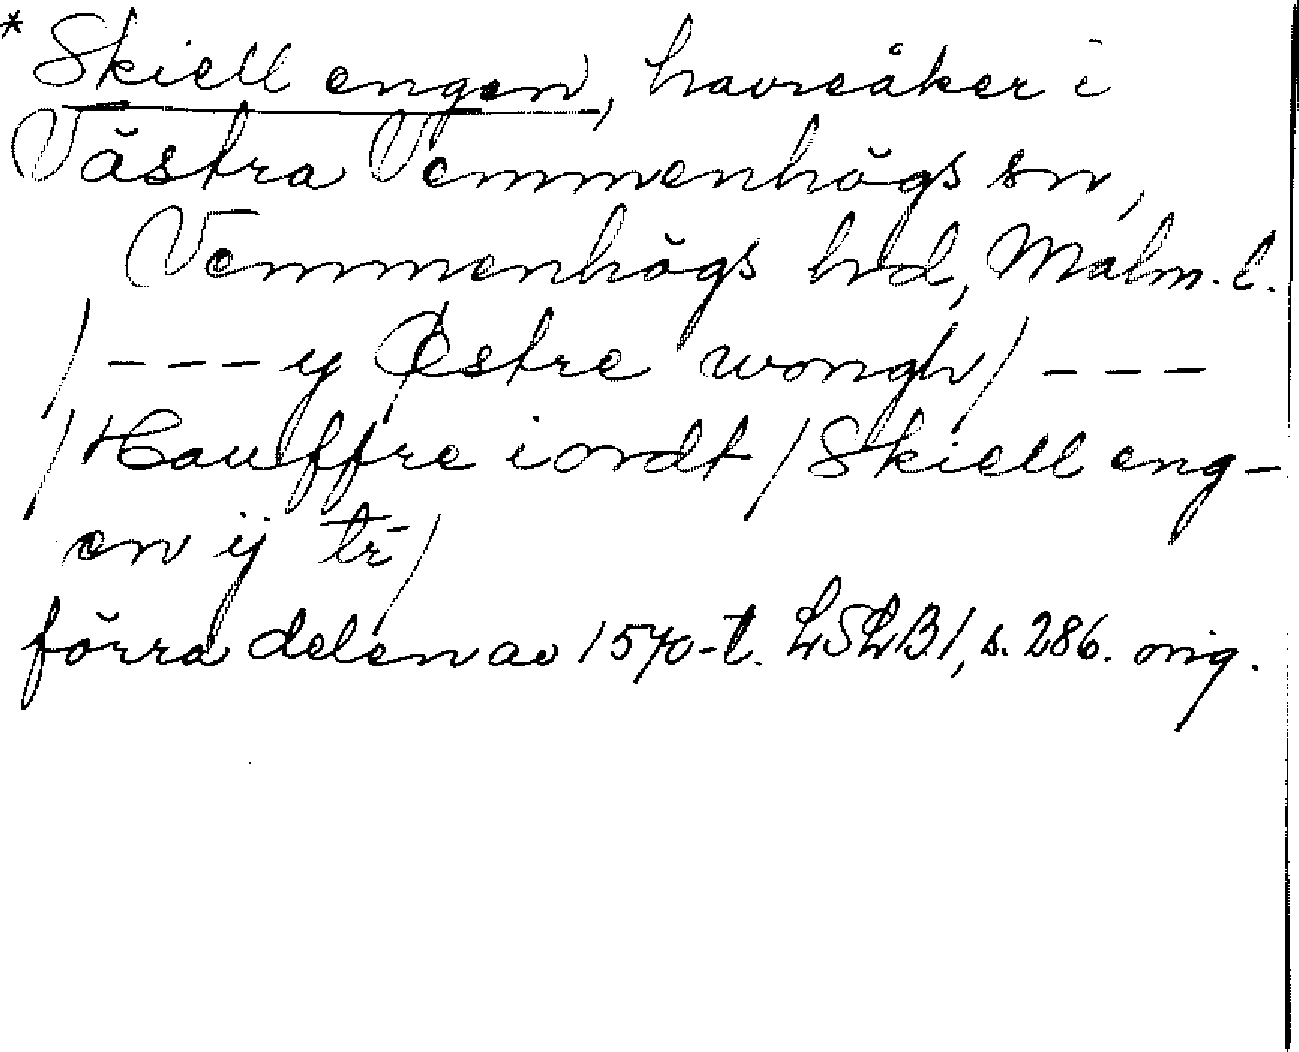 *Skiell engen, havreåker i
Västra Vemmenhögs sn,
Vemmenhögs hd, Malm. l.
/ - - - y Østre wongh / - - -
/ Hauffre iordt / Skiell eng-
en ij tr /
förra delen av 1570-t. LSLB1, s. 286. orig.